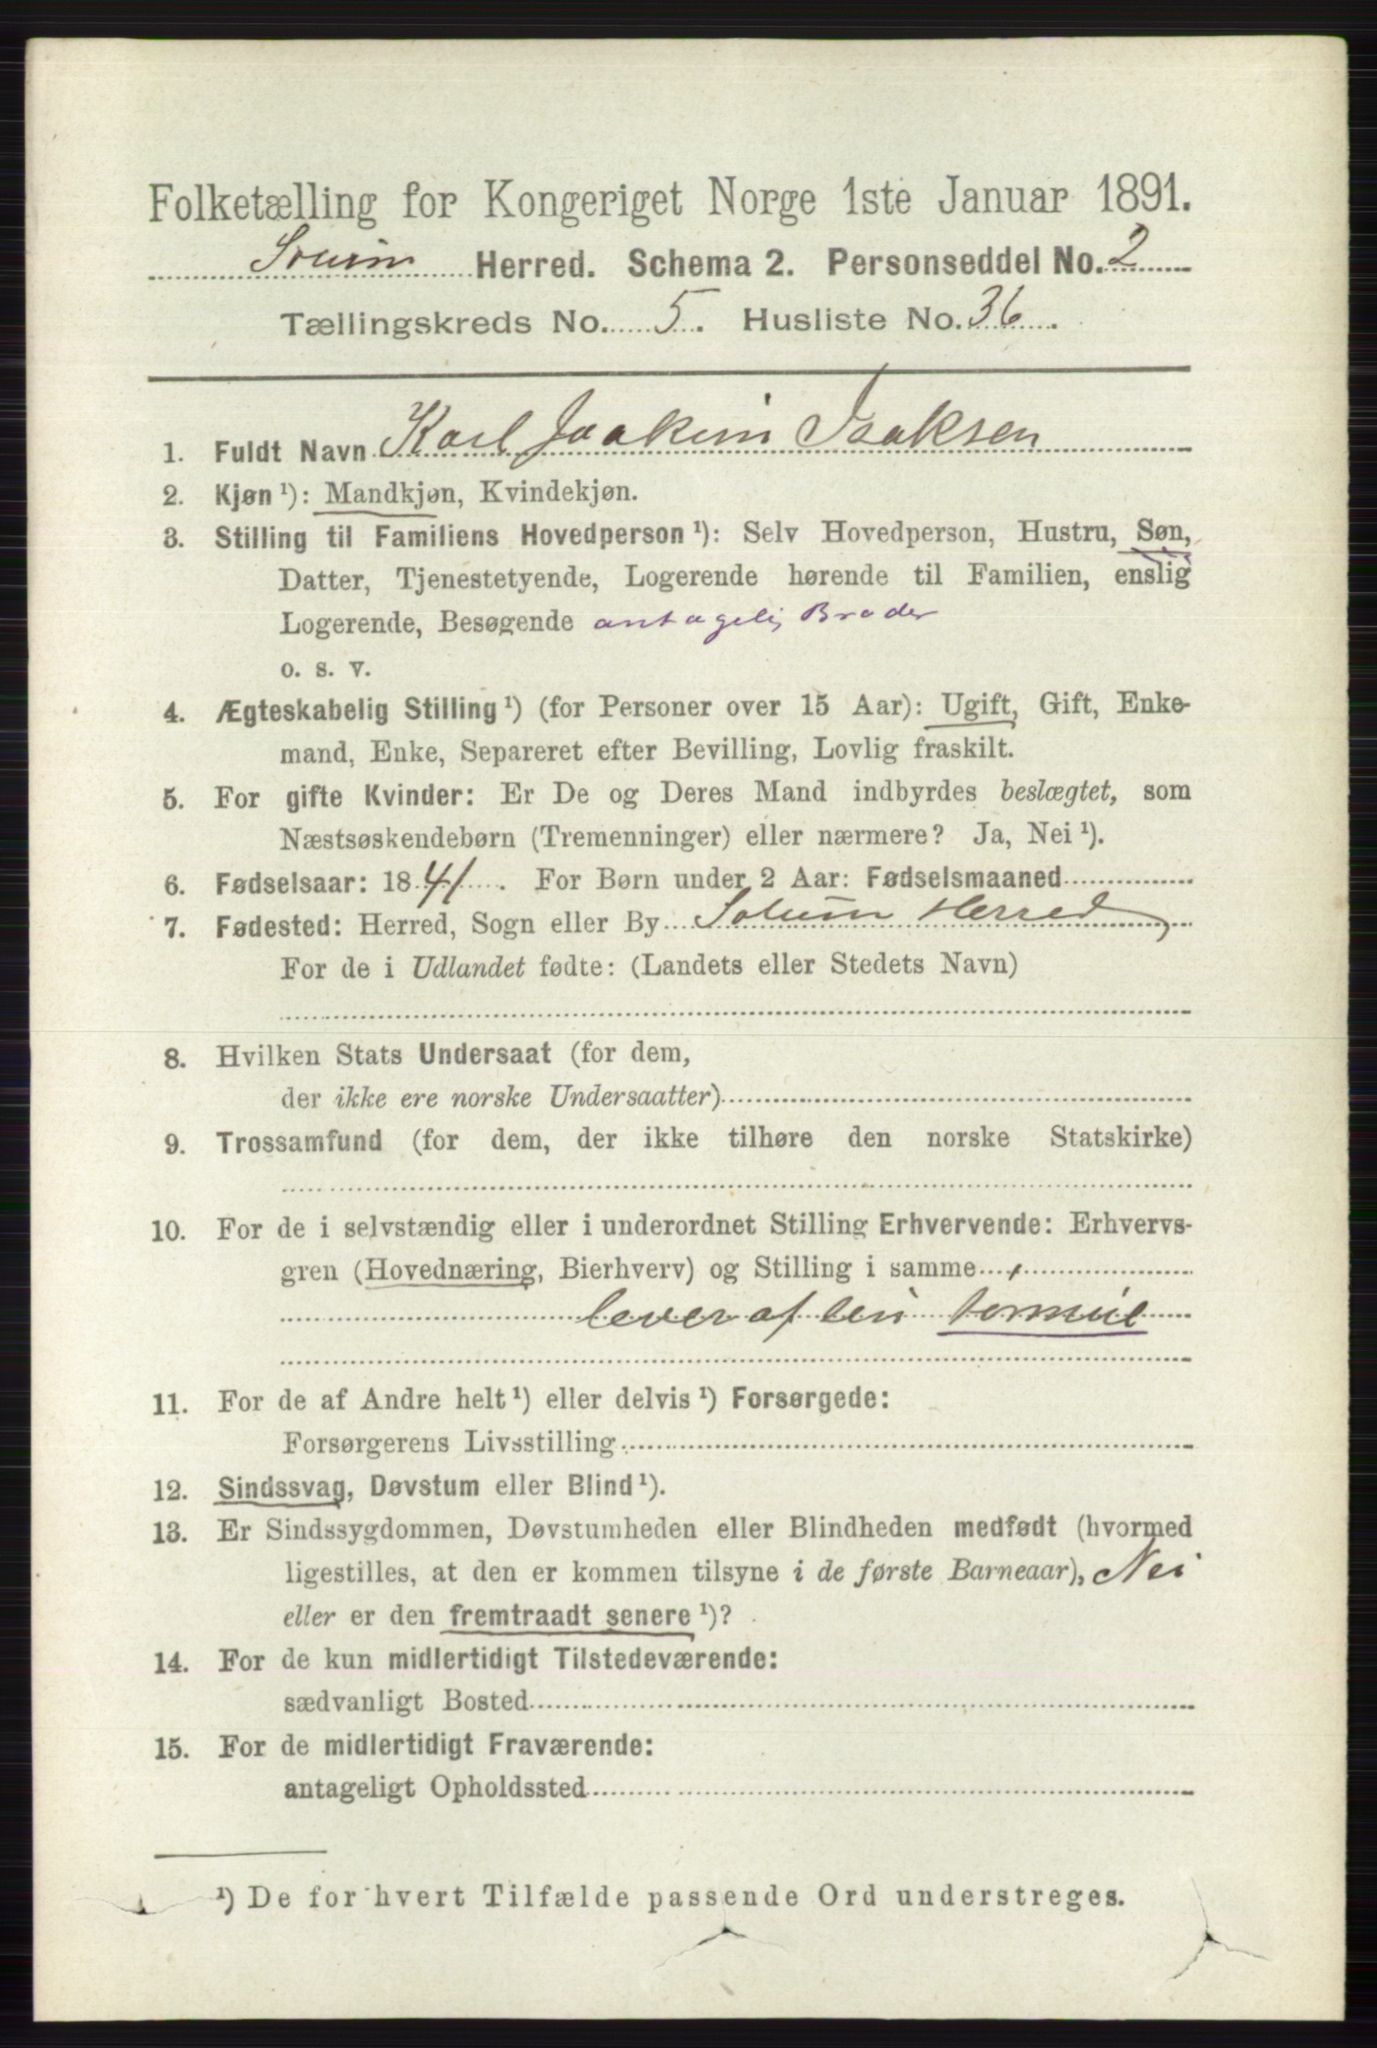 Folketælling for Kongeriget Norge 1ste Januar 1891.
Solum Herred. Schema 2. Personseddel No. 2
Tællingskreds No. 5. Husliste No. 36.
1. Fuldt Navn Karl Joakim Isaksen
2. Kjøn ¹): Mandkjøn, Kvindekjøn.
3. Stilling til Familiens Hovedperson ¹): Selv Hovedperson, Hustru, Søn,
Datter, Tjenestetyende, Logerende hørende til Familien, enslig
Logerende, Besøgende antagelig Broder
o. s. v.
4. Ægteskabelig Stilling ¹) (for Personer over 15 Aar): Ugift, Gift, Enke-
mand, Enke, Separeret efter Bevilling, Lovlig fraskilt.
5. For gifte Kvinder: Er De og Deres Mand indbyrdes beslægtet, som
Næstsøskendebørn (Tremenninger) eller nærmere? Ja, Nei ¹).
6. Fødselsaar: 1841. For Børn under 2 Aar: Fødselsmaaned
7. Fødested: Herred, Sogn eller By Solum Herred
For de i Udlandet fødte: (Landets eller Stedets Navn)
8. Hvilken Stats Undersaat (for dem,
der ikke ere norske Undersaatter)
9. Trossamfund (for dem, der ikke tilhøre den norske Statskirke)
10. For de i selvstændig eller i underordnet Stilling Erhvervende: Erhvervs-
gren (Hovednæring, Bierhverv) og Stilling i samme
lever af sin formue
11. For de af Andre helt ¹) eller delvis ¹) Forsørgede:
Forsørgerens Livsstilling
12. Sindssvag, Døvstum eller Blind ¹).
13. Er Sindssygdommen, Døvstumheden eller Blindheden medfødt (hvormed
ligestilles, at den er kommen tilsyne i de første Barneaar), Nei
eller er den fremtraadt senere ¹)?
14. For de kun midlertidigt Tilstedeværende:
sædvanligt Bosted
15. For de midlertidigt Fraværende:
antageligt Opholdssted
¹) De for hvert Tilfælde passende Ord understreges.